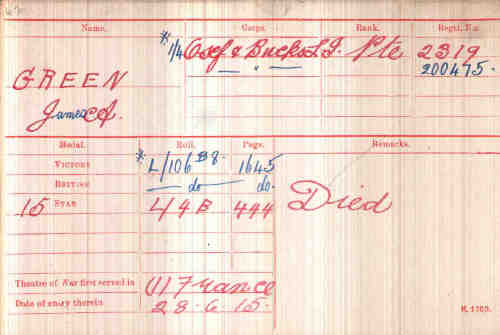 Name. Corps. Rank. Regtl. No.
* 1/4 Oxf & Bucks L.I. Pte 2319
— " — 200475.
GREEN
James
Medal. Roll. Page. Remarks.
VICTORY * L/106 B8. 1645
BRITISH — do — do.
15 STAR L/4 B 444 Died
Theatre of War first served in (1) France
Date of entry therein 28-6-15.
K. 1380.